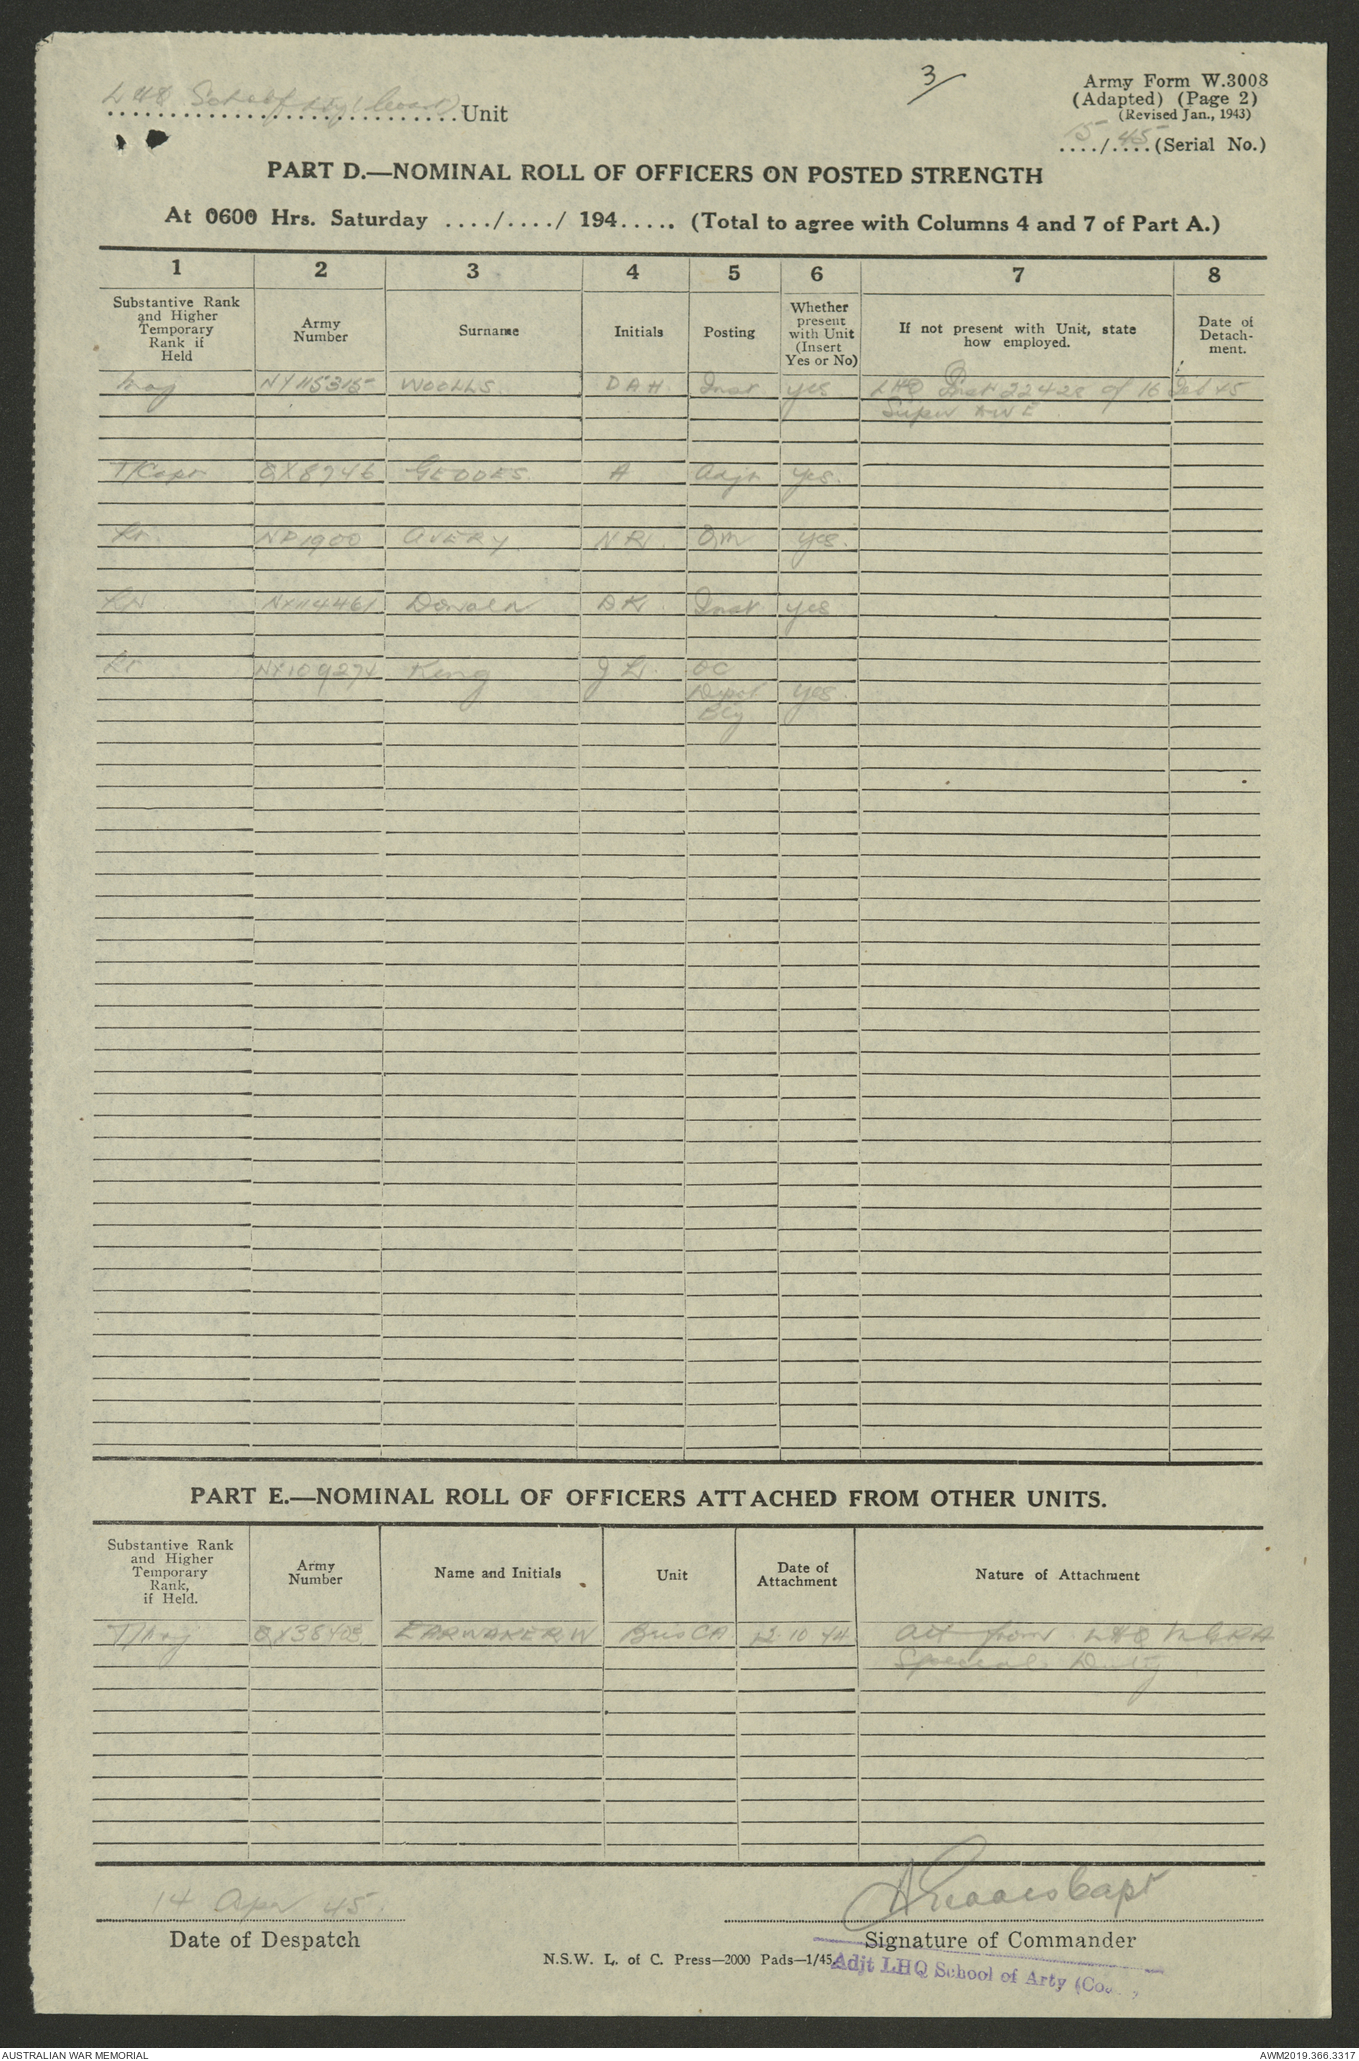 3
Army Form W.3008
(Adapted) (Page 2)
(Revised Jan., 1943)
LHQ School of Arty (Coast) Unit
15/45 (Serial No.)
PART D.—NOMINAL ROLL OF OFFICERS ON POSTED STRENGTH
At 0600 Hrs. Saturday ..../..../ 194..... (Total to agree with Columns 4 and 7 of Part A.)
1 2 3 4 5 6 7 8
Substantive Rank and Higher Temporary Rank if Held
Army Number
Surname
Initials
Posting
Whether present with Unit (Insert Yes or No)
If not present with Unit, state how employed.
Date of Detach-ment.
Maj NX115315 WOOLLS. D A H. Inst yes LHQ 22428 of 16 Feb 45
Super AWE
T/Capt QX8746 GEDDES A Adjt yes.
Lt NP1900 AVERY. N R. QM yes.
Lt NX114461 Donald D K Inst yes
Lt NX109274 King J L. OC
Depot yes.
Bty
PART E.—NOMINAL ROLL OF OFFICERS ATTACHED FROM OTHER UNITS.
Substantive Rank and Higher Temporary Rank, if Held.
Army Number
Name and Initials
Unit
Date of Attachment
Nature of Attachment
T/Maj QX38403 EARWAKER W Bris CA 12 10 44 att from LHQ MGRA
Special Duty
14 Apr 45.
A Geddes Capt
Date of Despatch
Signature of Commander
N.S.W. L. of C. Press—2000 Pads—1/45
Adjt LHQ School of Arty (Co
AUSTRALIAN WAR MEMORIAL
AWM2019.366.3317